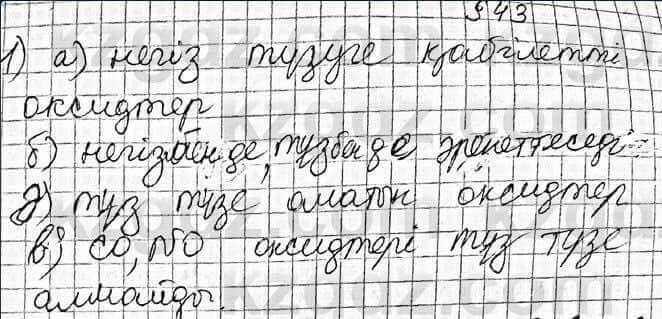 § 43
1) а) негіз түзуге қабілетті
оксидтер
б) негізбен де, тұзбаде әрекеттеседі
д) тұз түзе аматын оксидтер
в) CO, NO оксидтері тұз түзе
алмайды.